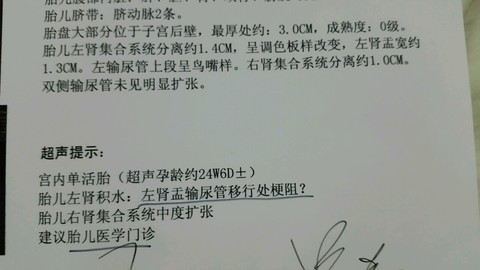 胎儿脐带：脐动脉2条。
胎盘大部分位于子宫后壁，最厚处约：3.0CM，成熟度：0级。
胎儿左肾集合系统分离约1.4CM，呈调色板样改变，左肾盂宽约
1.3CM。左输尿管上段呈鸟嘴样。右肾集合系统分离约1.0CM。
双侧输尿管未见明显扩张。
超声提示：
宫内单活胎（超声孕龄约24W6D±）
胎儿左肾积水：左肾盂输尿管移行处梗阻？
胎儿右肾集合系统中度扩张
建议胎儿医学门诊